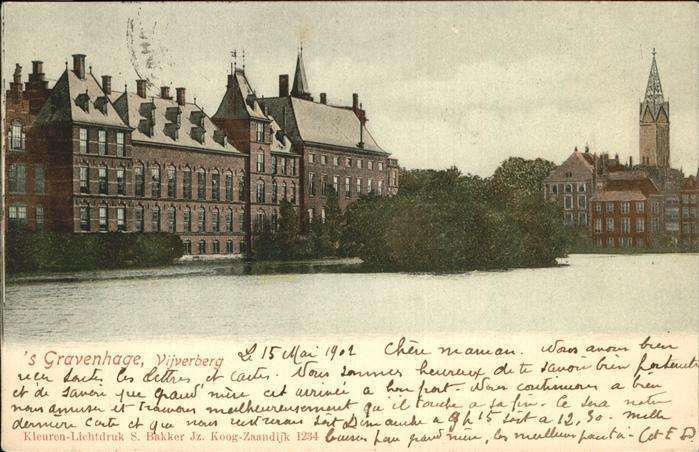 's Gravenhage, Vijverberg
Le 15 Mai 1902 Chère maman. Nous avons bien
reçu toutes les lettres et cartes. Nous sommes heureux de te savoir bien portante
et de savoir que grand' mère est arrivée a bon port. Nous continuons a bien
nous amuser et trouvons malheureusement qu'il touche a sa fin. Ce sera notre
dernière carte et que nous rentrerons soit Dimanche a 9h 15 soit a 12,30. Mille
Kleuren-Lichtdruk S. Bakker Jz. Koog-Zaandijk 1234
baisers pour grand mère, les meilleurs pour toi